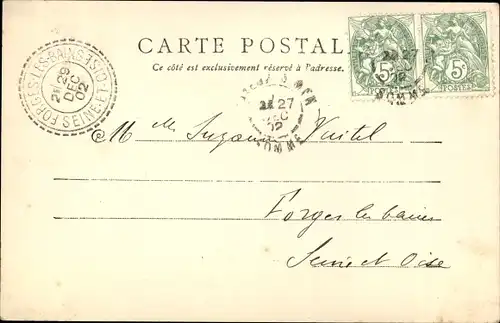 CARTE POSTALE
Ce côté est exclusivement réservé à l'adresse.
5c 5c
POSTES POSTES
FORGES-LES-BAINS SEINE-ET-OISE
29
DEC
02
27
DEC
02
SOMME
27
02
SOMME
M Suzanne
Forges les bains
Seine et Oise